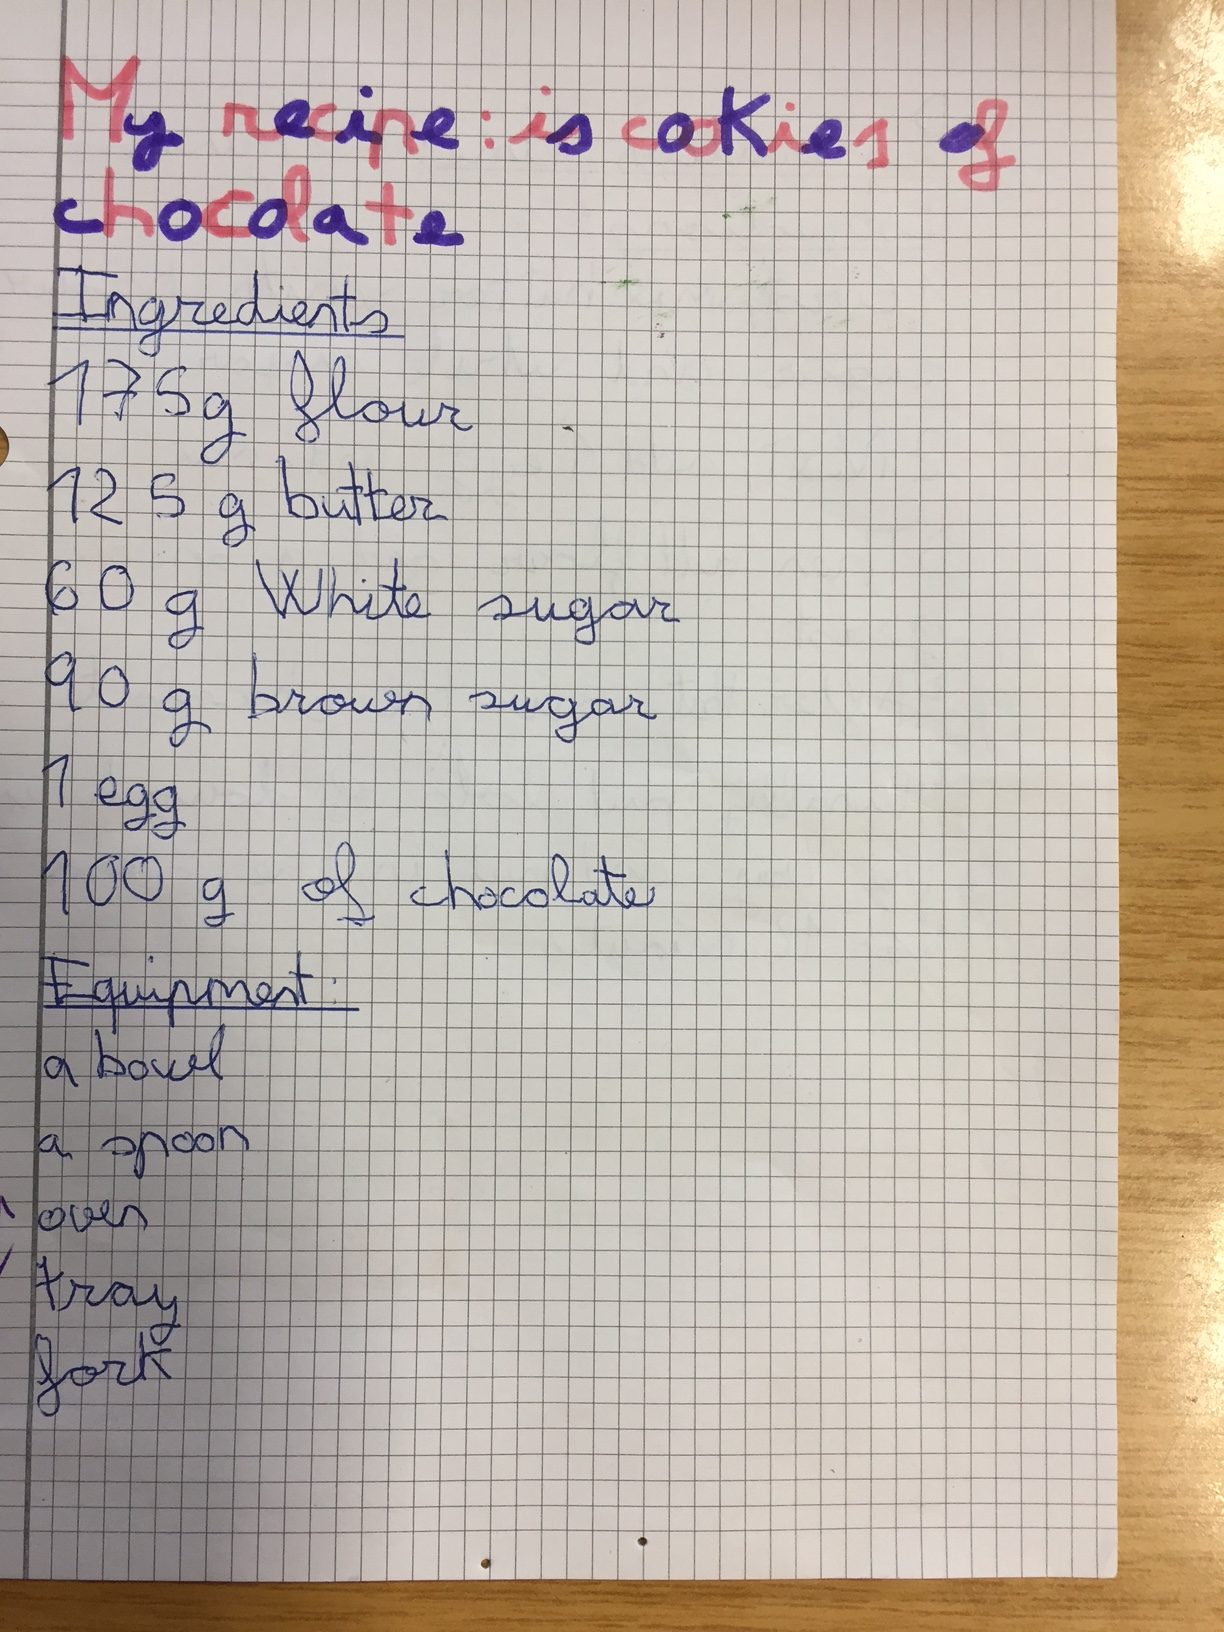 My recipe: is cookies of
chocolate
Ingredients
175g flour
125 g butter
60 g White sugar
90 g brown sugar
1 egg
100 g of chocolate
Equipment:
a bowl
a spoon
oven
tray
fork